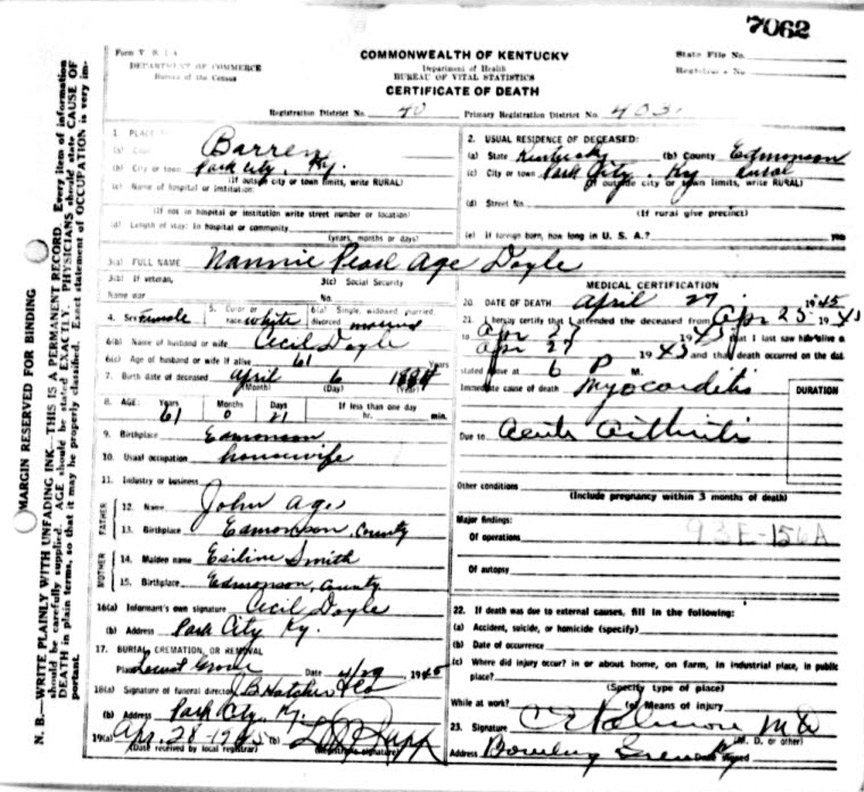 7062
Form V. S. 1-A
DEPARTMENT OF COMMERCE
Bureau of the Census
COMMONWEALTH OF KENTUCKY
Department of Health
BUREAU OF VITAL STATISTICS
CERTIFICATE OF DEATH
State File No.
Registrar's No.
Registration District No. 40 Primary Registration District No. 403
MARGIN RESERVED FOR BINDING
N. B.—WRITE PLAINLY WITH UNFADING INK—THIS IS A PERMANENT RECORD. Every item of information
should be carefully supplied. AGE should be stated EXACTLY. PHYSICIANS should state CAUSE OF
DEATH in plain terms, so that it may be properly classified. Exact statement of OCCUPATION is very im-
portant.
1. PLACE
(a) Barren
(b) City or town Park City, Ky.
(If outside city or town limits, write RURAL)
(c) Name of hospital or institution:
(If not in hospital or institution write street number or location)
(d) Length of stay: In hospital or community
(years, months or days)
2. USUAL RESIDENCE OF DECEASED:
(a) State Kentucky (b) County Edmonson
(c) City or town Park City, Ky Rural
(If outside city or town limits, write RURAL)
(d) Street No.
(If rural give precinct)
(e) If foreign born, how long in U. S. A.?
3(a) FULL NAME Nannie Pearl Age Doyle
3(b) If veteran, 3(c) Social Security
Name war No.
4. Sex Female 5. Color or race white 6(a) Single, widowed, married, divorced married
6(b) Name of husband or wife Cecil Doyle
6(c) Age of husband or wife if alive 61 Years
7. Birth date of deceased April 6 1884
(Month) (Day) (Year)
8. AGE: Years Months Days If less than one day
61 0 21 hr. min.
9. Birthplace Edmonson
10. Usual occupation housewife
11. Industry or business
FATHER
12. Name John Age
13. Birthplace Edmonson, County
MOTHER
14. Maiden name Smith
15. Birthplace Edmonson, County
16(a) Informant's own signature Cecil Doyle
(b) Address Park City Ky.
17. BURIAL, CREMATION, OR REMOVAL
Place Locust Grove Date 4/29 1945
18(a) Signature of funeral director J B Hatcher & Co
(b) Address Park City, Ky.
19(a) Apr. 28-1945 (b)
(Date received by local registrar) (Registrar's signature)
MEDICAL CERTIFICATION
20. DATE OF DEATH April 27 1945
21. I hereby certify that I attended the deceased from Apr 25 1945
to Apr 27 1945 that I last saw alive on
Apr 27 1945 and that death occurred on the date
stated above at 6 P M.
Immediate cause of death Myocarditis
DURATION
Due to Acute Arthritis
Other conditions
(Include pregnancy within 3 months of death)
Major findings:
Of operations
93E-156A
Of autopsy
22. If death was due to external causes, fill in the following:
(a) Accident, suicide, or homicide (specify)
(b) Date of occurrence
(c) Where did injury occur? in or about home, on farm, in industrial place, in public
place?
(Specify type of place)
While at work? (e) Means of injury
23. Signature M D
(M. D. or other)
Address Bowling Green Ky Date signed